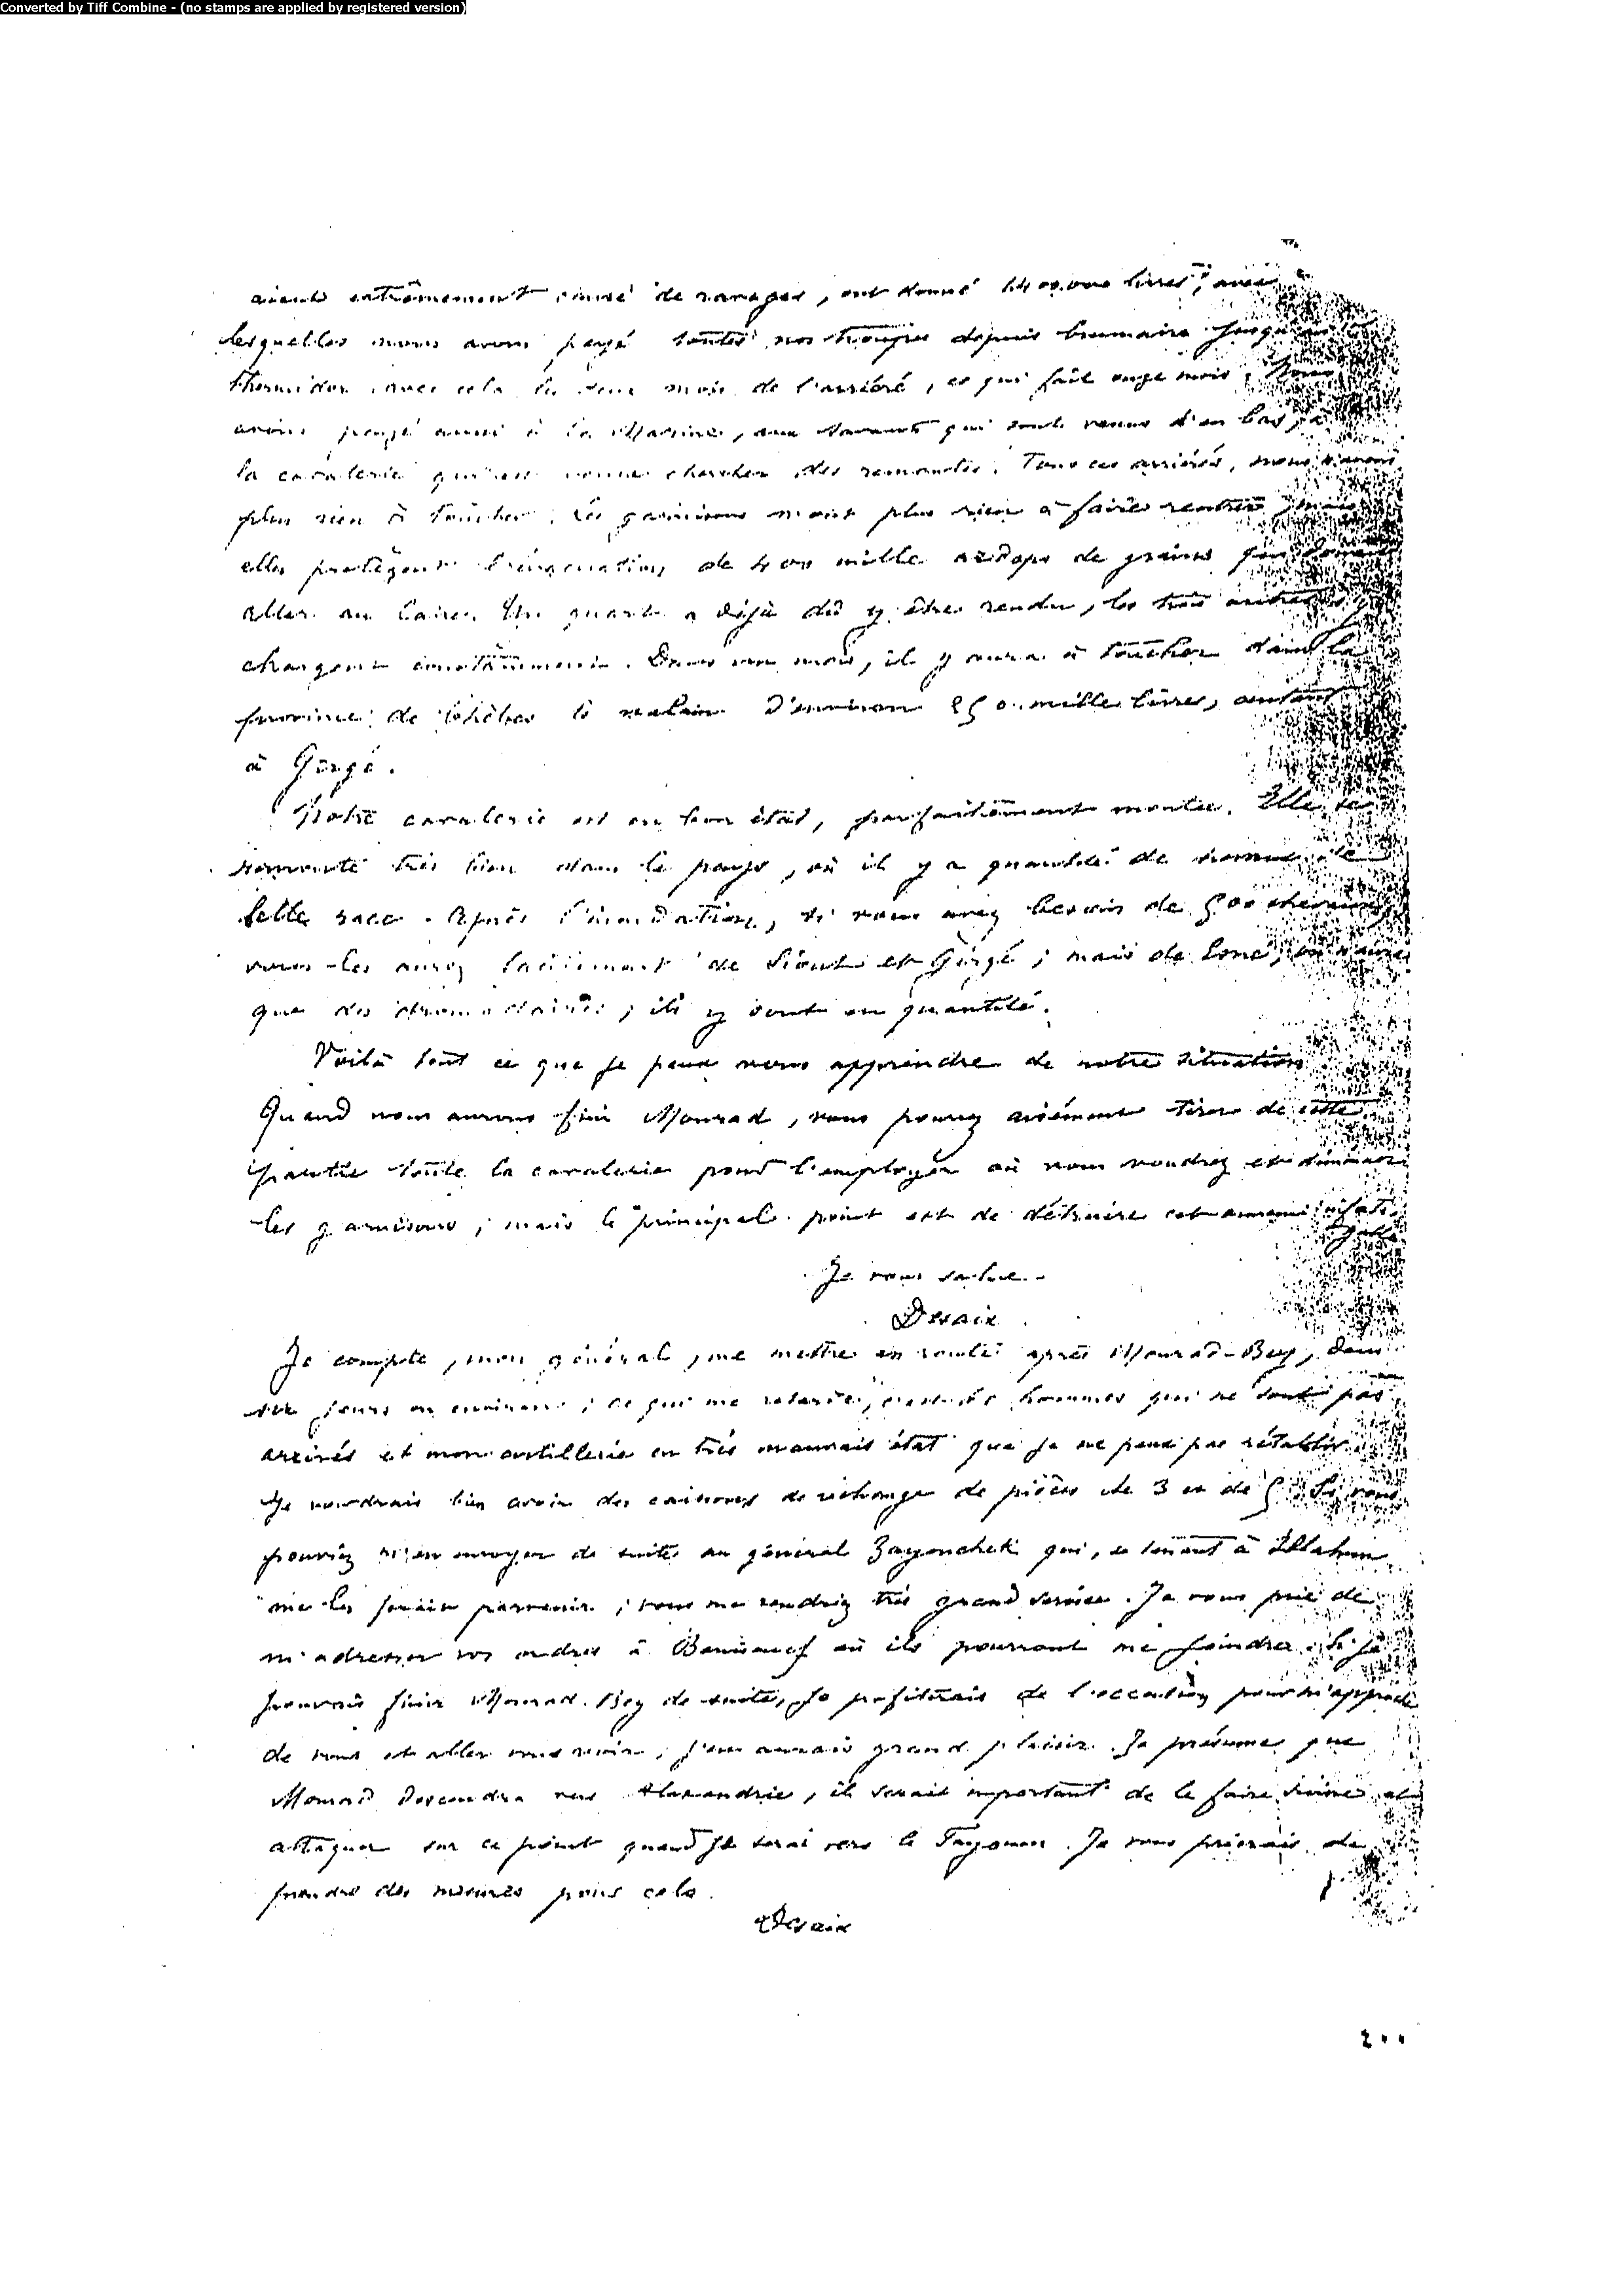 Converted by Tiff Combine - (no stamps are applied by registered version)
aient extrêmement causé de ravages, ont donné livres, avec
lesquelles nous avons payé toutes nos troupes depuis brumaire jusqu'en
thermidor avec cela les deux mois de l'arriéré, ce qui fait onze mois; nous
avons payé aussi à la Marine, aux savants qui sont venus d'en bas, à
la cavalerie qui est venue chercher des remontes. Tous ces arriérés, nous n'avons
plus rien à toucher. Les garnisons n'ont plus rien à faire rentrer, mais
elles protègent l'évacuation de 400 mille ardeps de grains qui doivent
aller au Caire. Un quart a déjà dû y être rendu, les trois autres
chargent constamment. Dans un mois, il y aura à toucher dans la
province de Thèbes le d'environ 250 mille livres, autant
à Girgé.
Notre cavalerie est en bon état, parfaitement montée. Elle se
remonte très bien dans le pays, où il y a quantité de de
belle race. Après l'inondation, si vous avez besoin de 500 chevaux,
vous les aurez facilement de Siout et Girgé; mais de on n'aura
que des dromadaires; ils y sont en quantité.
Voilà tout ce que je peux vous apprendre de notre situation
Quand nous aurons fini Mourad, vous pourrez aisément tirer de cette
partie toute la cavalerie pour l'employer où vous voudrez et diminuer
les garnisons; mais le principal point est de détruire cet ennemi infati-
gable
Je vous salue.-
Desaix
Je compte, mon général, me mettre en route après Mourad-Bey, dans
six jours ou environ; ce qui me retarde, c'est des hommes qui ne sont pas
arrivés et mon artillerie en très mauvais état que je ne peux pas rétablir.
Je voudrais bien avoir des caissons de rechange de pièces de 3 et de 5. Si vous
pouviez m'en envoyer de suite au général Zayonchek qui, se tenant à Illahun
me les ferait parvenir, vous me rendriez très grand service. Je vous prie de
m'adresser vos ordres à Benisouef où ils pourront me joindre. Si je
pouvais finir Mourad-Bey de suite, je profiterais de l'occasion pour m'approcher
de vous et aller vous voir, j'en aurais grand plaisir. Je présume que
Mourad descendra vers Alexandrie, il serait important de le faire suivre et
attaquer sur ce point quand je serai vers le Fayoum. Je vous prierais de
prendre des mesures pour cela.
Desaix